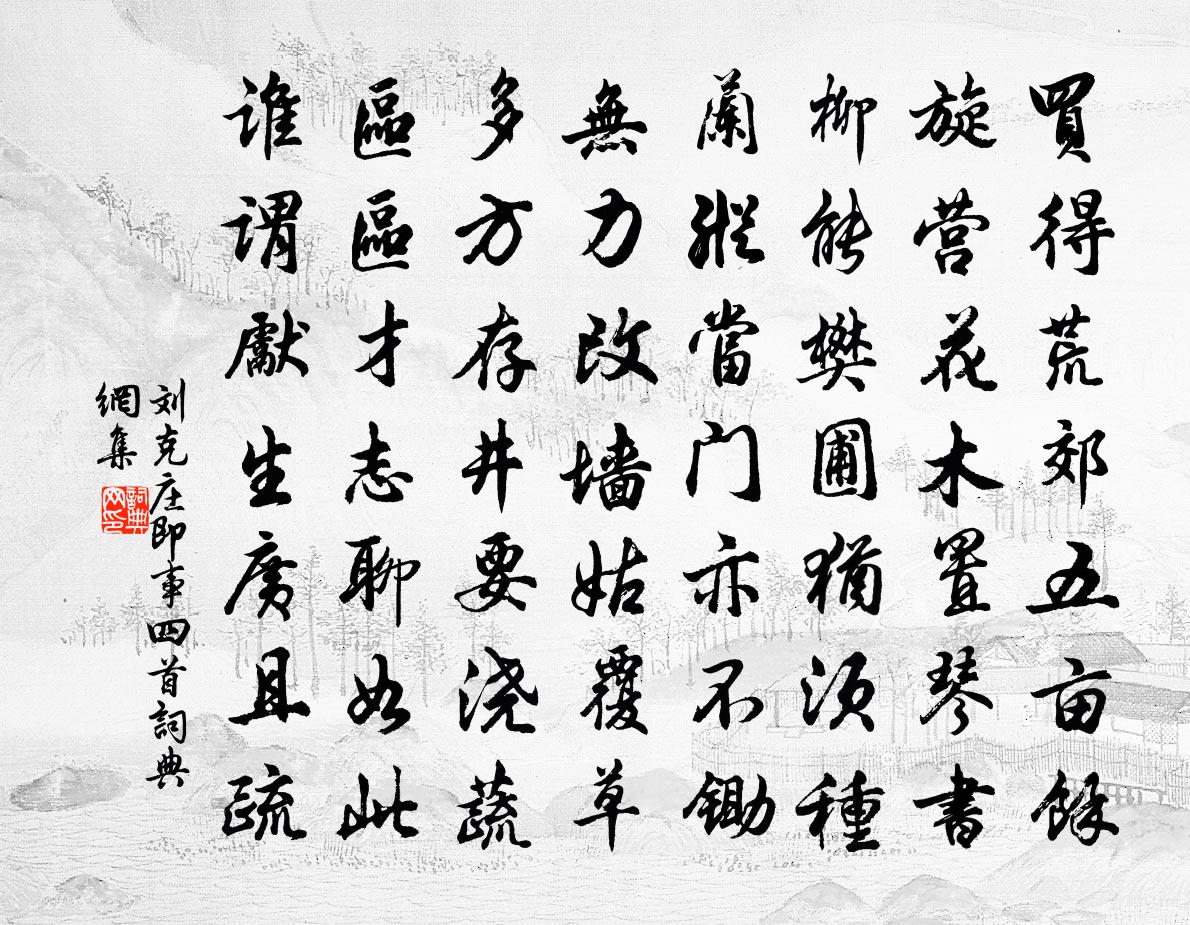 買得荒郊五亩餘
旋营花木置琴書
柳能樊圃猶須種
蘭縱當门亦不鋤
無力改墙姑覆草
多方存井要浇蔬
區區才志聊如此
谁谓獻生廣且疏
刘克庄即事四首詞典
網集
詞典
网印